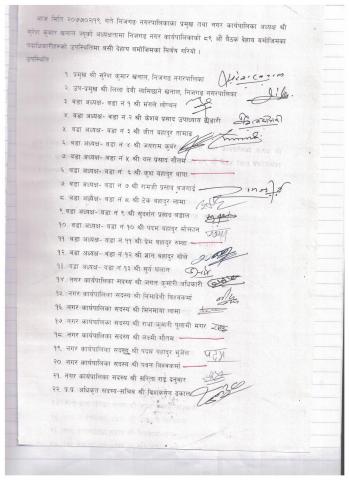 आज मिति २०७७०२१९ गते निजगढ नगरपालिकाका प्रमुख तथा नगर कार्यपालिका अध्यक्ष श्री
सुरेश कुमार खनाल ज्यूको अध्यक्षतामा निजगढ नगर कार्यपालिकाको ८९ औं बैठक देहाय बमोजिमका
पदाधिकारीहरुको उपस्थितिमा बसी देहाय बमोजिमका निर्णय गरियो ।
उपस्थितिः
१ प्रमुख श्री सुरेश कुमार खनाल, निजगढ नगरपालिका
२ उप-प्रमुख श्री लिला देवी लामिछाने खनाल, निजगढ नगरपालिका
३ वडा अध्यक्ष- वडा नं १ श्री मंगले लोप्चन
४. वडा अध्यक्ष- वडा नं २ श्री केशव प्रसाद उपाध्याय
५ वडा अध्यक्ष- वडा नं ३ श्री जीत बहादुर तामाङ
६ वडा अध्यक्ष- वडा नं ४ श्री जयराम कुवर
७ वडा अध्यक्ष- वडा नं ५ श्री यज्ञ प्रसाद गौतम
८ वडा अध्यक्ष- वडा नं ६ श्री कुश बहादुर थापा
७ वडा अध्यक्ष- वडा नं ७ श्री रामजी प्रसाद बजगाई
८. वडा अध्यक्ष- वडा नं ८ श्री टेक बहादुर लामा
९ वडा अध्यक्ष- वडा नं ९ श्री सुदर्शन प्रसाद
१०. वडा अध्यक्ष- वडा नं १० श्री पदम बहादुर मोक्तान
११ वडा अध्यक्ष- वडा नं ११ श्री प्रेम बहादुर
१२. वडा अध्यक्ष- वडा नं १२ श्री ज्ञान बहादुर घोले
१३ वडा अध्यक्ष- वडा नं १३ श्री सुर्य घलान
१४ नगर कार्यपालिका सदस्य श्री जगत कुमारी अधिकारी
१५. नगर कार्यपालिका सदस्य श्री विश्वकर्मा
१६. नगर कार्यपालिका सदस्य श्री चिनमाया लामा
१७. नगर कार्यपालिका सदस्य श्री राधा कुमारी पुलामी मगर
१८. नगर कार्यपालिका सदस्य श्री लक्ष्मी गौतम
१९. नगर कार्यपालिका सदस्य श्री पदम बहादुर भुजेल
२० नगर कार्यपालिका सदस्य श्री पवन विश्वकर्मा
२१. नगर कार्यपालिका सदस्य श्री सरिता राई दनुवार
२२ प्र.प्र. अधिकृत सदस्य-सचिव श्री ढकाल